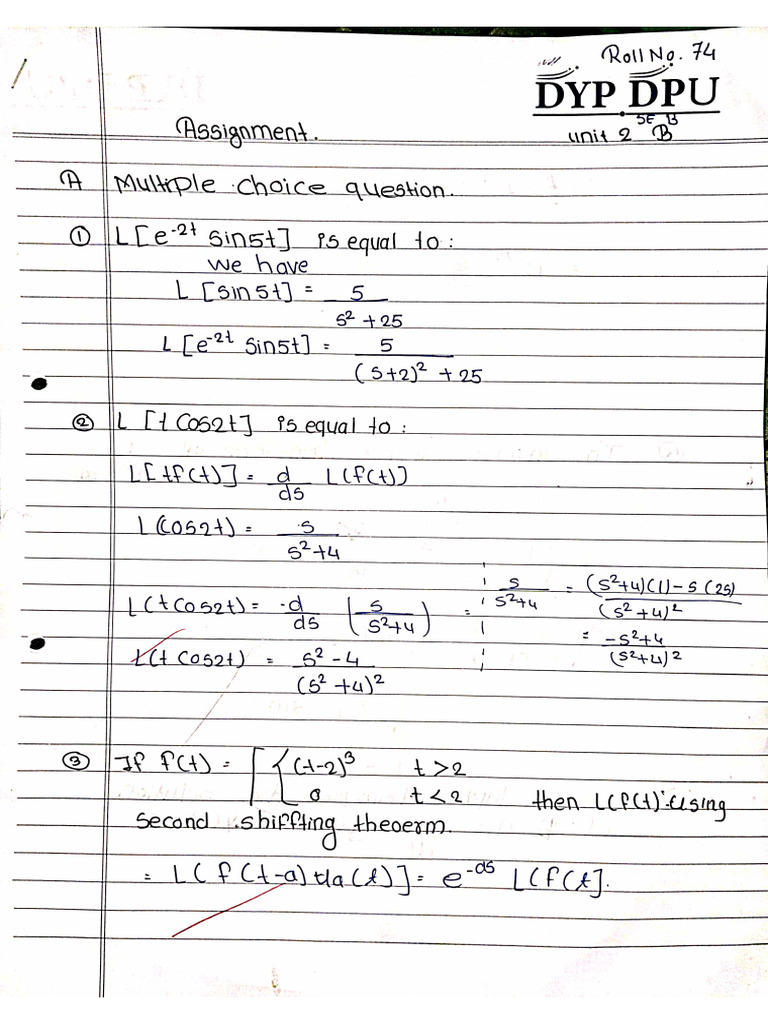 Roll No. 74
DYP DPU
SE B
Assignment.
unit 2 B
A Multiple choice question.
① L[e^-2t sin5t] is equal to :
we have
L [sin 5t] = 5 / s² + 25
L [e^-2t sin5t] = 5 / (s+2)² + 25
② L [t cos2t] is equal to :
L[tf(t)] = d/ds L(f(t))
L(cos2t) = s / s²+4
L(tcos2t) = -d/ds (s / s²+4) = s / s²+4 = (s²+4)(1) - s(2s) / (s²+4)²
= -s²+4 / (s²+4)²
L(t cos2t) = s² - 4 / (s² + 4)²
③ If f(t) = [ { (t-2)³ t > 2
0 t < 2 then L(f(t) using
second shiffting theoerm.
= L(f(t-a) ua(t)] = e^-as L(f(t].